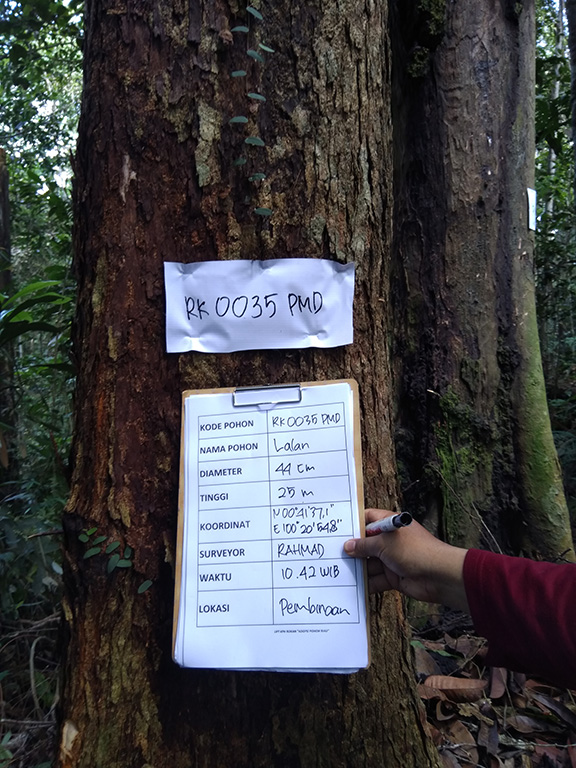 RK 0035 PMD
KODE POHON RK 0035 PMD
NAMA POHON Lalan
DIAMETER 44 cm
TINGGI 25 m
KOORDINAT N 00°41'37,1"
E 100°20'54,8"
SURVEYOR RAHMAD
WAKTU 10.42 WIB
LOKASI Pembinaan